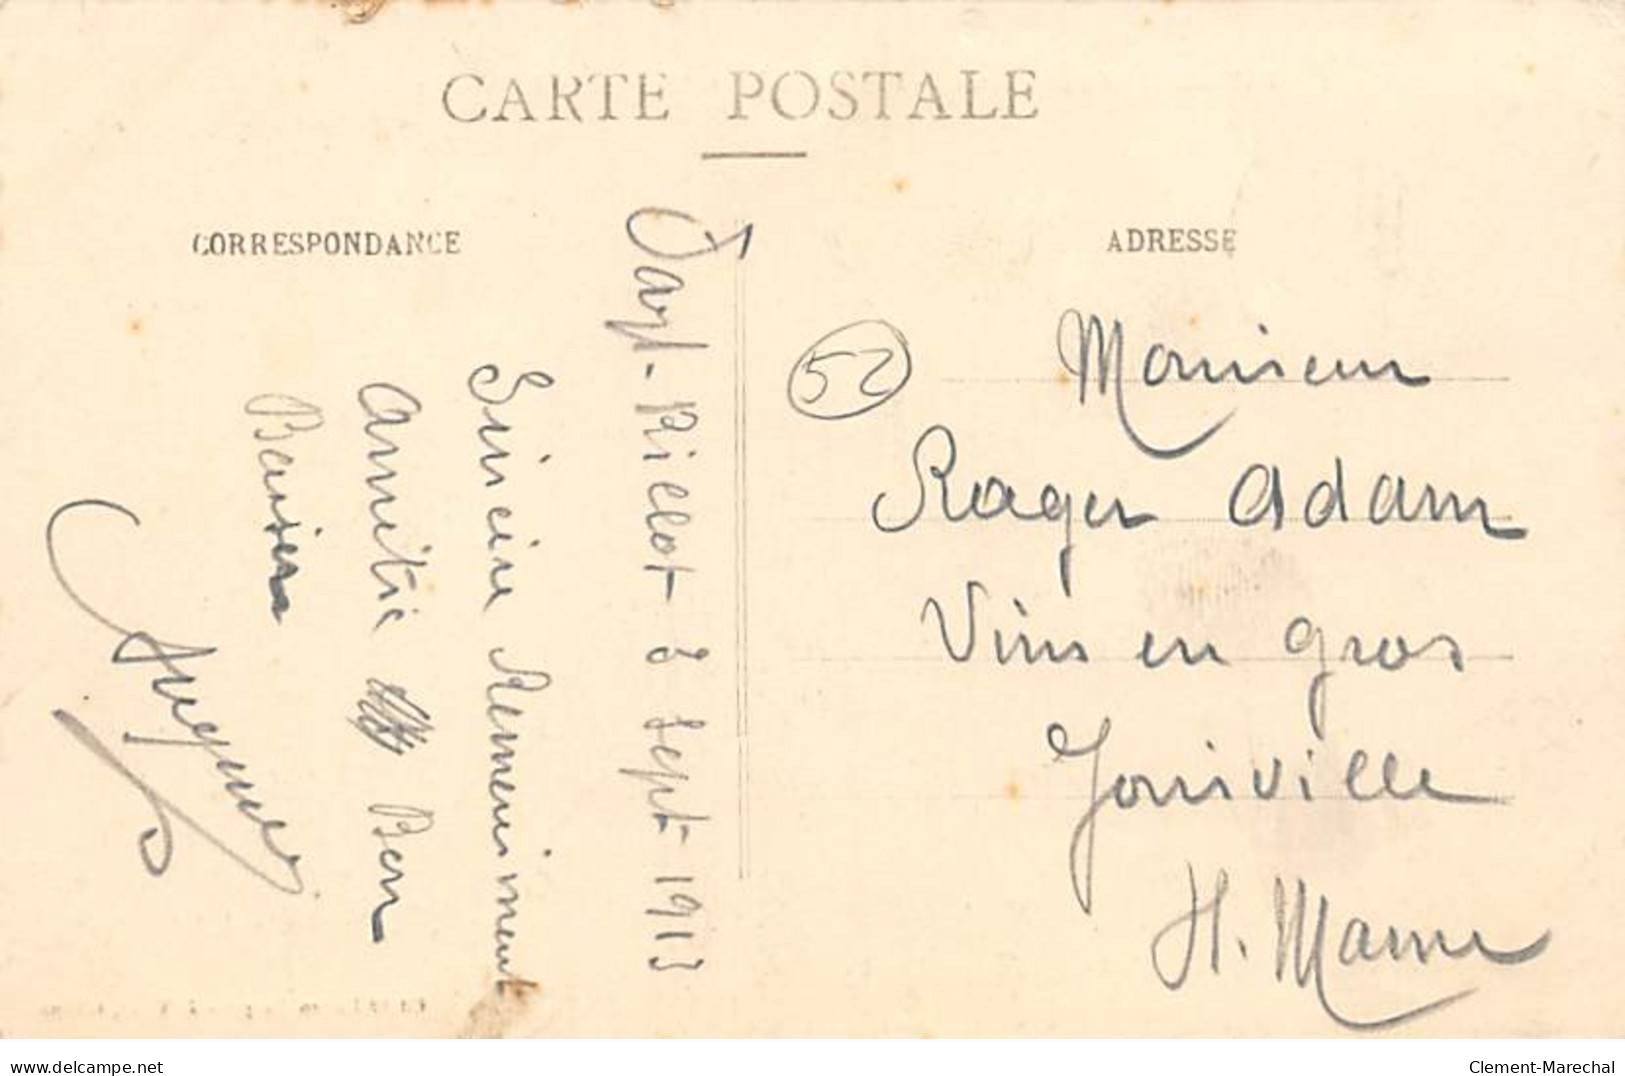 CARTE POSTALE
CORRESPONDANCE
ADRESSE
3 Sept 1913
Sincère Remerciment
Amitié Bon
Baiser
52
Monsieur
Roger Adam
Vins en gros
Joinville
H. Marne
delcampe.net
Clement-Marechal